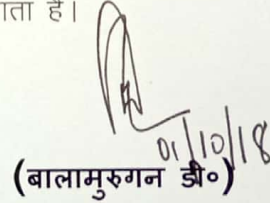 ता है।
01/10/18
(बालामुरुगन डी०)